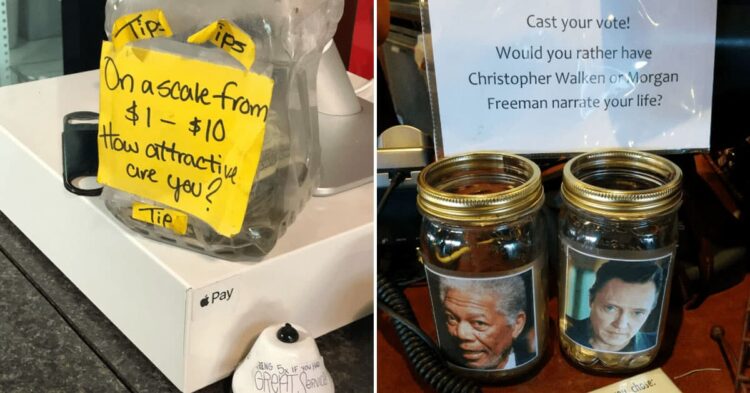 Tips
Tips
On a scale from
$1 - $10
How attractive
are you?
Tip
Pay
RING 5x IF YOU HAD
GREAT SERVICE
Cast your vote!
Would you rather have
Christopher Walken or Morgan
Freeman narrate your life?
chose: